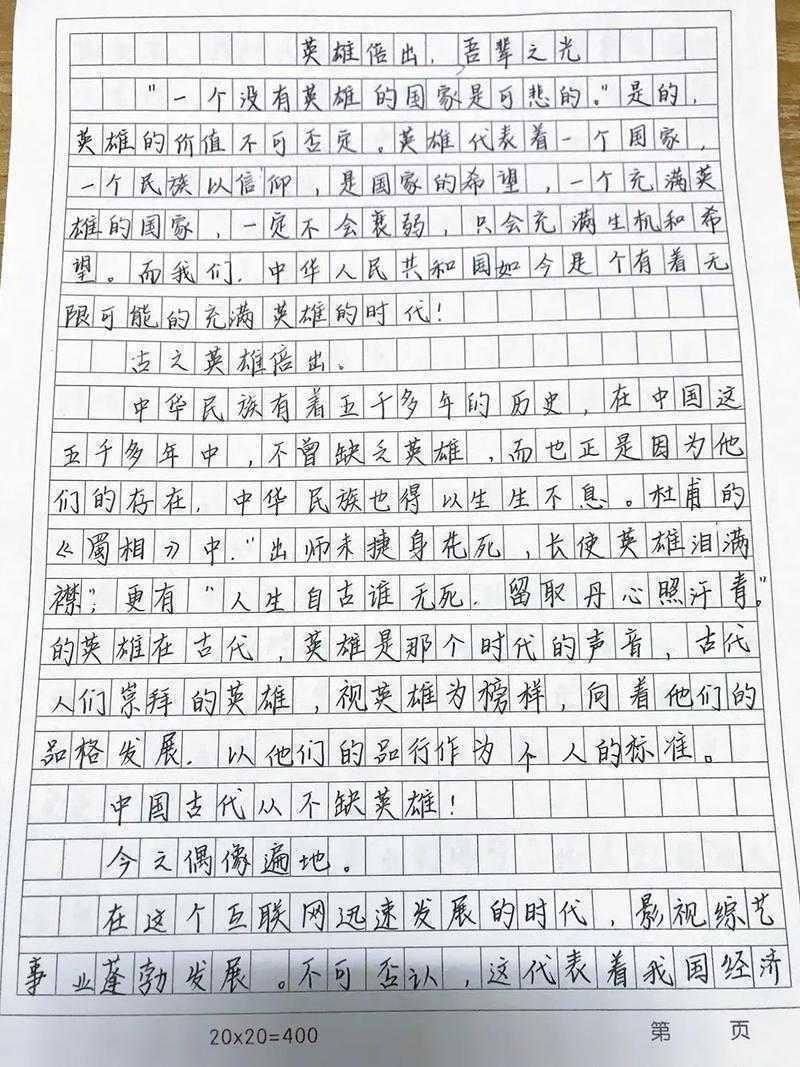 英雄倍出，吾辈之光
"一个没有英雄的国家是可悲的。"是的，
英雄的价值不可否定。英雄代表着一个国家，
一个民族以信仰，是国家的希望，一个充满英
雄的国家，一定不会衰弱，只会充满生机和希
望。而我们，中华人民共和国如今是个有着无
限可能的充满英雄的时代！
古之英雄倍出。
中华民族有着五千多年的历史，在中国这
五千多年中，不曾缺乏英雄，而也正是因为他
们的存在，中华民族也得以生生不息。杜甫的
《蜀相》中，"出师未捷身先死，长使英雄泪满
襟"；更有"人生自古谁无死，留取丹心照汗青。"
的英雄在古代，英雄是那个时代的声音，古代
人们崇拜的英雄，视英雄为榜样，向着他们的
品格发展，以他们的品行作为个人的标准。
中国古代从不缺英雄！
今之偶像遍地。
在这个互联网迅速发展的时代，影视综艺
事业蓬勃发展。不可否认，这代表着我国经济
20×20=400
第 页